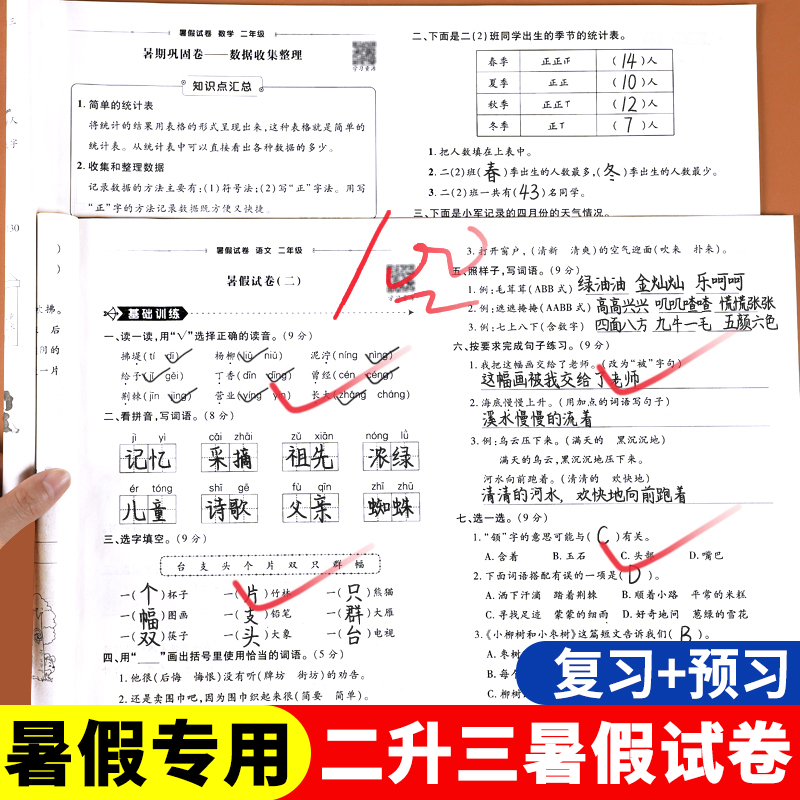 暑假试卷 数学 二年级
暑期巩固卷——数据收集整理
学习查漏
知识点汇总
1. 简单的统计表
将统计的结果用表格的形式呈现出来,这种表格就是简单的
统计表。从统计表中可以直接看出各种数据的多少。
2. 收集和整理数据
记录数据的方法主要有:(1)符号法;(2)写“正”字法。用写
“正”字的方法记录数据既方便又快捷。
二、下面是二(2)班同学出生的季节的统计表。
春季 正正正 (14)人
夏季 正正 (10)人
秋季 正正T (12)人
冬季 正T (7)人
1. 把人数填在上表中。
2. 二(2)班(春)季出生的人数最多,(冬)季出生的人数最少。
3. 二(2)班一共有(43)名同学。
三、下面是小军记录的四月份的天气情况。
暑假试卷 语文 二年级
暑假试卷(二)
100
基础训练
一、读一读,用“√”选择正确的读音。(9分)
拂堤(tí dī) 杨柳(liǔ niǔ) 泥泞(níng nìng)
给予(jǐ gěi) 丁香(dīn dīng) 曾经(cén céng)
荆棘(jīn jīng) 营业(yíng yín) 长大(zhǎng cháng)
二、看拼音,写词语。(8分)
jì yì cǎi zhāi zǔ xiān nóng lǜ
记忆 采摘 祖先 浓绿
ér tóng shī gē fù qīn zhī zhū
儿童 诗歌 父亲 蜘蛛
三、选字填空。(9分)
台 支 头 个 片 双 只 群 幅
一(个)杯子 一(片)竹林 一(只)熊猫
一(幅)图画 一(支)铅笔 一(群)大雁
一(双)筷子 一(头)大象 一(台)电视
四、用“___”画出括号里使用恰当的词语。(5分)
1. 他很(后悔 悔恨)没有听(牌坊 街坊)的劝告。
2. 还是卖围巾吧,因为围巾织起来很(简要 简单)。
3. 打开窗户,(清新 清爽)的空气迎面(吹来 扑来)。
五、照样子,写词语。(9分)
1. 例:毛茸茸(ABB式) 绿油油 金灿灿 乐呵呵
2. 例:遮遮掩掩(AABB式) 高高兴兴 叽叽喳喳 慌慌张张
3. 例:七上八下(含数字) 四面八方 九牛一毛 五颜六色
六、按要求完成句子练习。(9分)
1. 我把这幅画交给了老师。(改为“被”字句)
这幅画被我交给了老师
2. 海底慢慢上升。(用加点的词语写句子)
溪水慢慢的流着
3. 例:乌云压下来。(满天的 黑沉沉地)
满天的乌云,黑沉沉地压下来。
河水向前跑着。(清清的 欢快地)
清清的河水,欢快地向前跑着
七、选一选。(9分)
1. “领”字的意思可能与(C)有关。
A. 含着 B. 玉石 C. 头部 D. 嘴巴
2. 下面词语搭配有误的一项是(D)。
A. 洒下汗滴 踏着荆棘 B. 顺着小路 平常的米糕
C. 寻找足迹 蒙蒙的细雨 D. 好奇地问 葱绿的雪花
3. 《小柳树和小枣树》这篇短文告诉我们(B)。
A. 枣树
B. 每个
C. 柳树
复习+预习
暑假专用 二升三暑假试卷